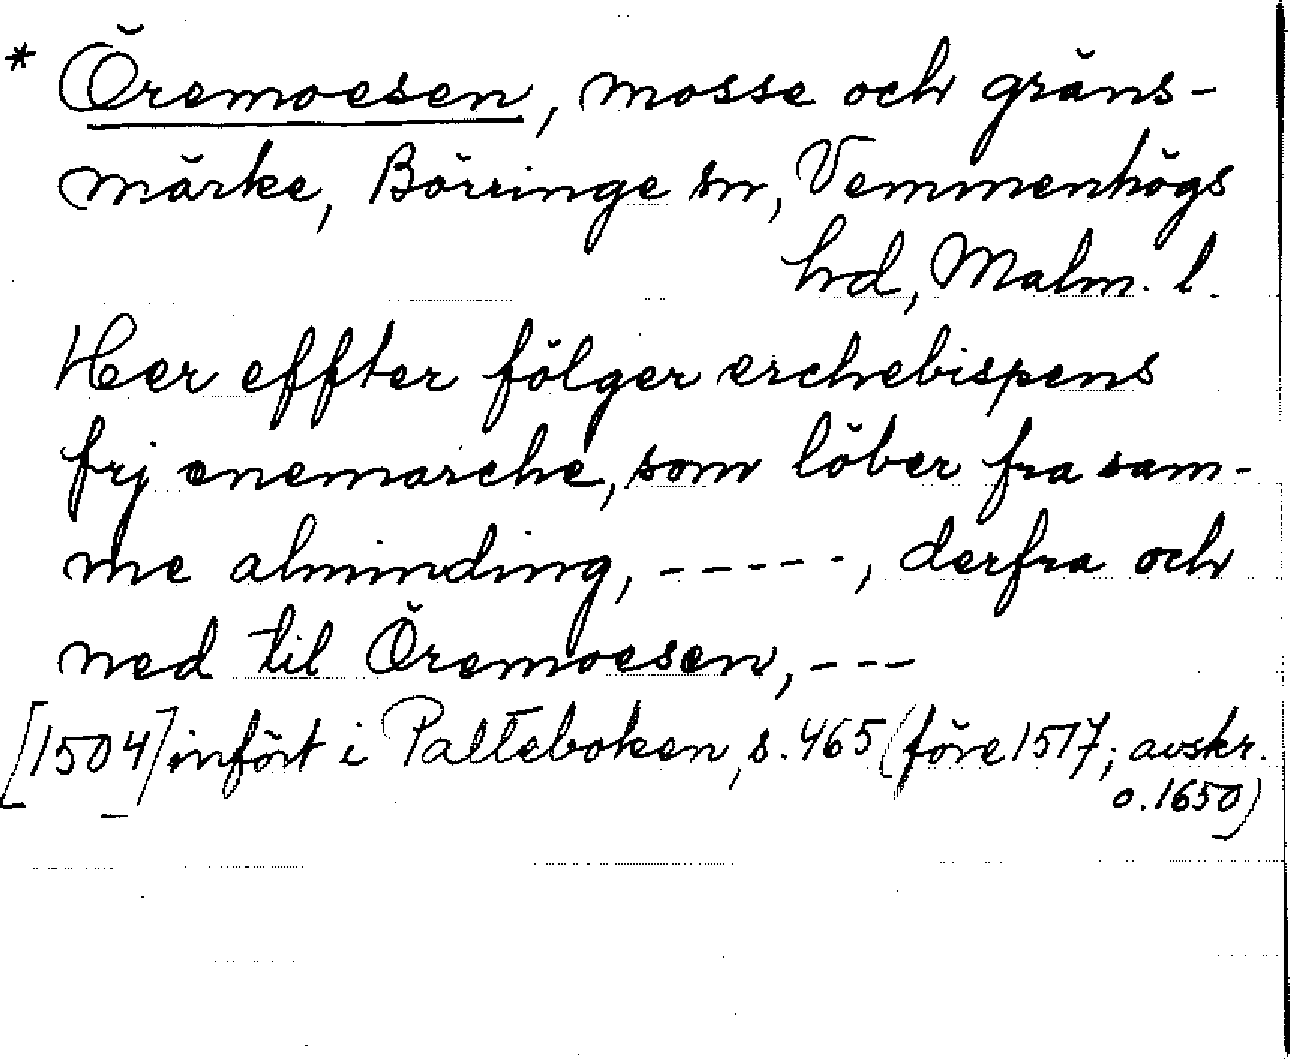 * Öremoesen, mosse och gräns-
märke, Börringe sn, Vemmenhögs
hrd, Malm. l.
Heer effter fölger erchebispens
frj enemarche, som löber fra sam-
me alminding, -----, derfra och
ned til Öremoesen, ---
[1504] infört i Palteboken, s. 465 (före 1517; avskr.
o. 1650)